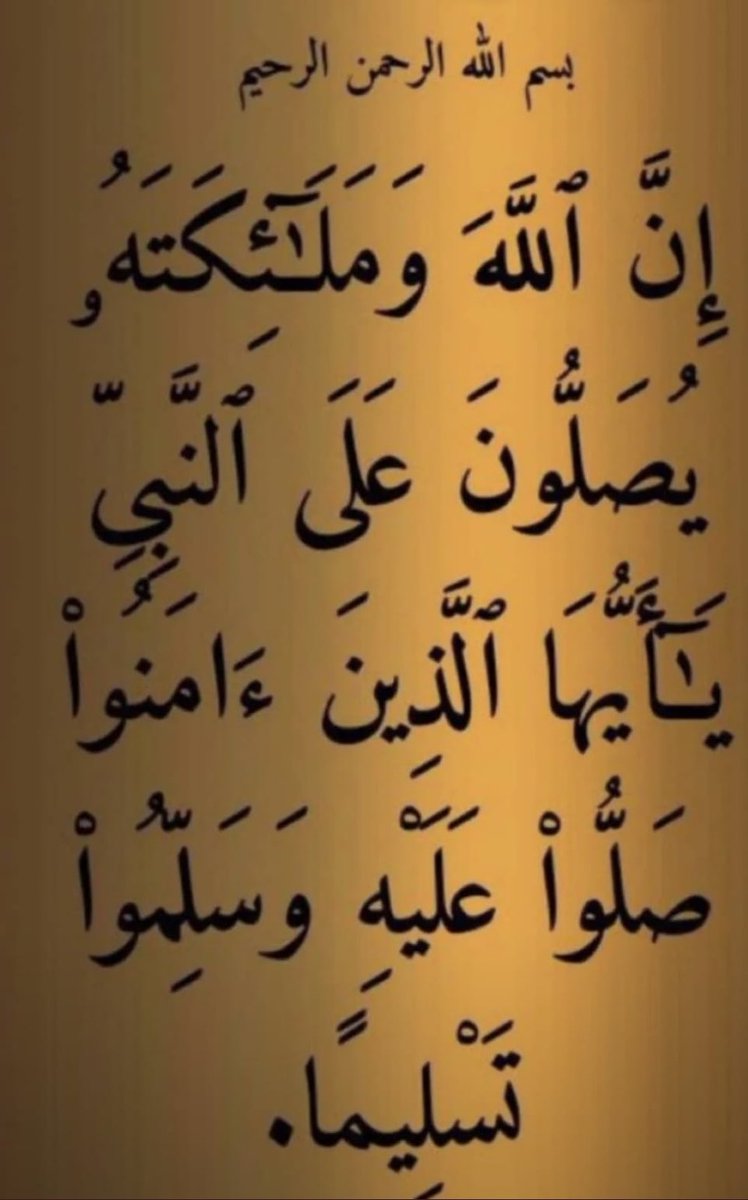 بسم الله الرحمن الرحيم
إِنَّ ٱللَّهَ وَمَلَـٰٓئِكَتَهُۥ
يُصَلُّونَ عَلَى ٱلنَّبِيِّ
يَـٰٓأَيُّهَا ٱلَّذِينَ ءَامَنُوا۟
صَلُّوا۟ عَلَيْهِ وَسَلِّمُوا۟
تَسْلِيمًا.